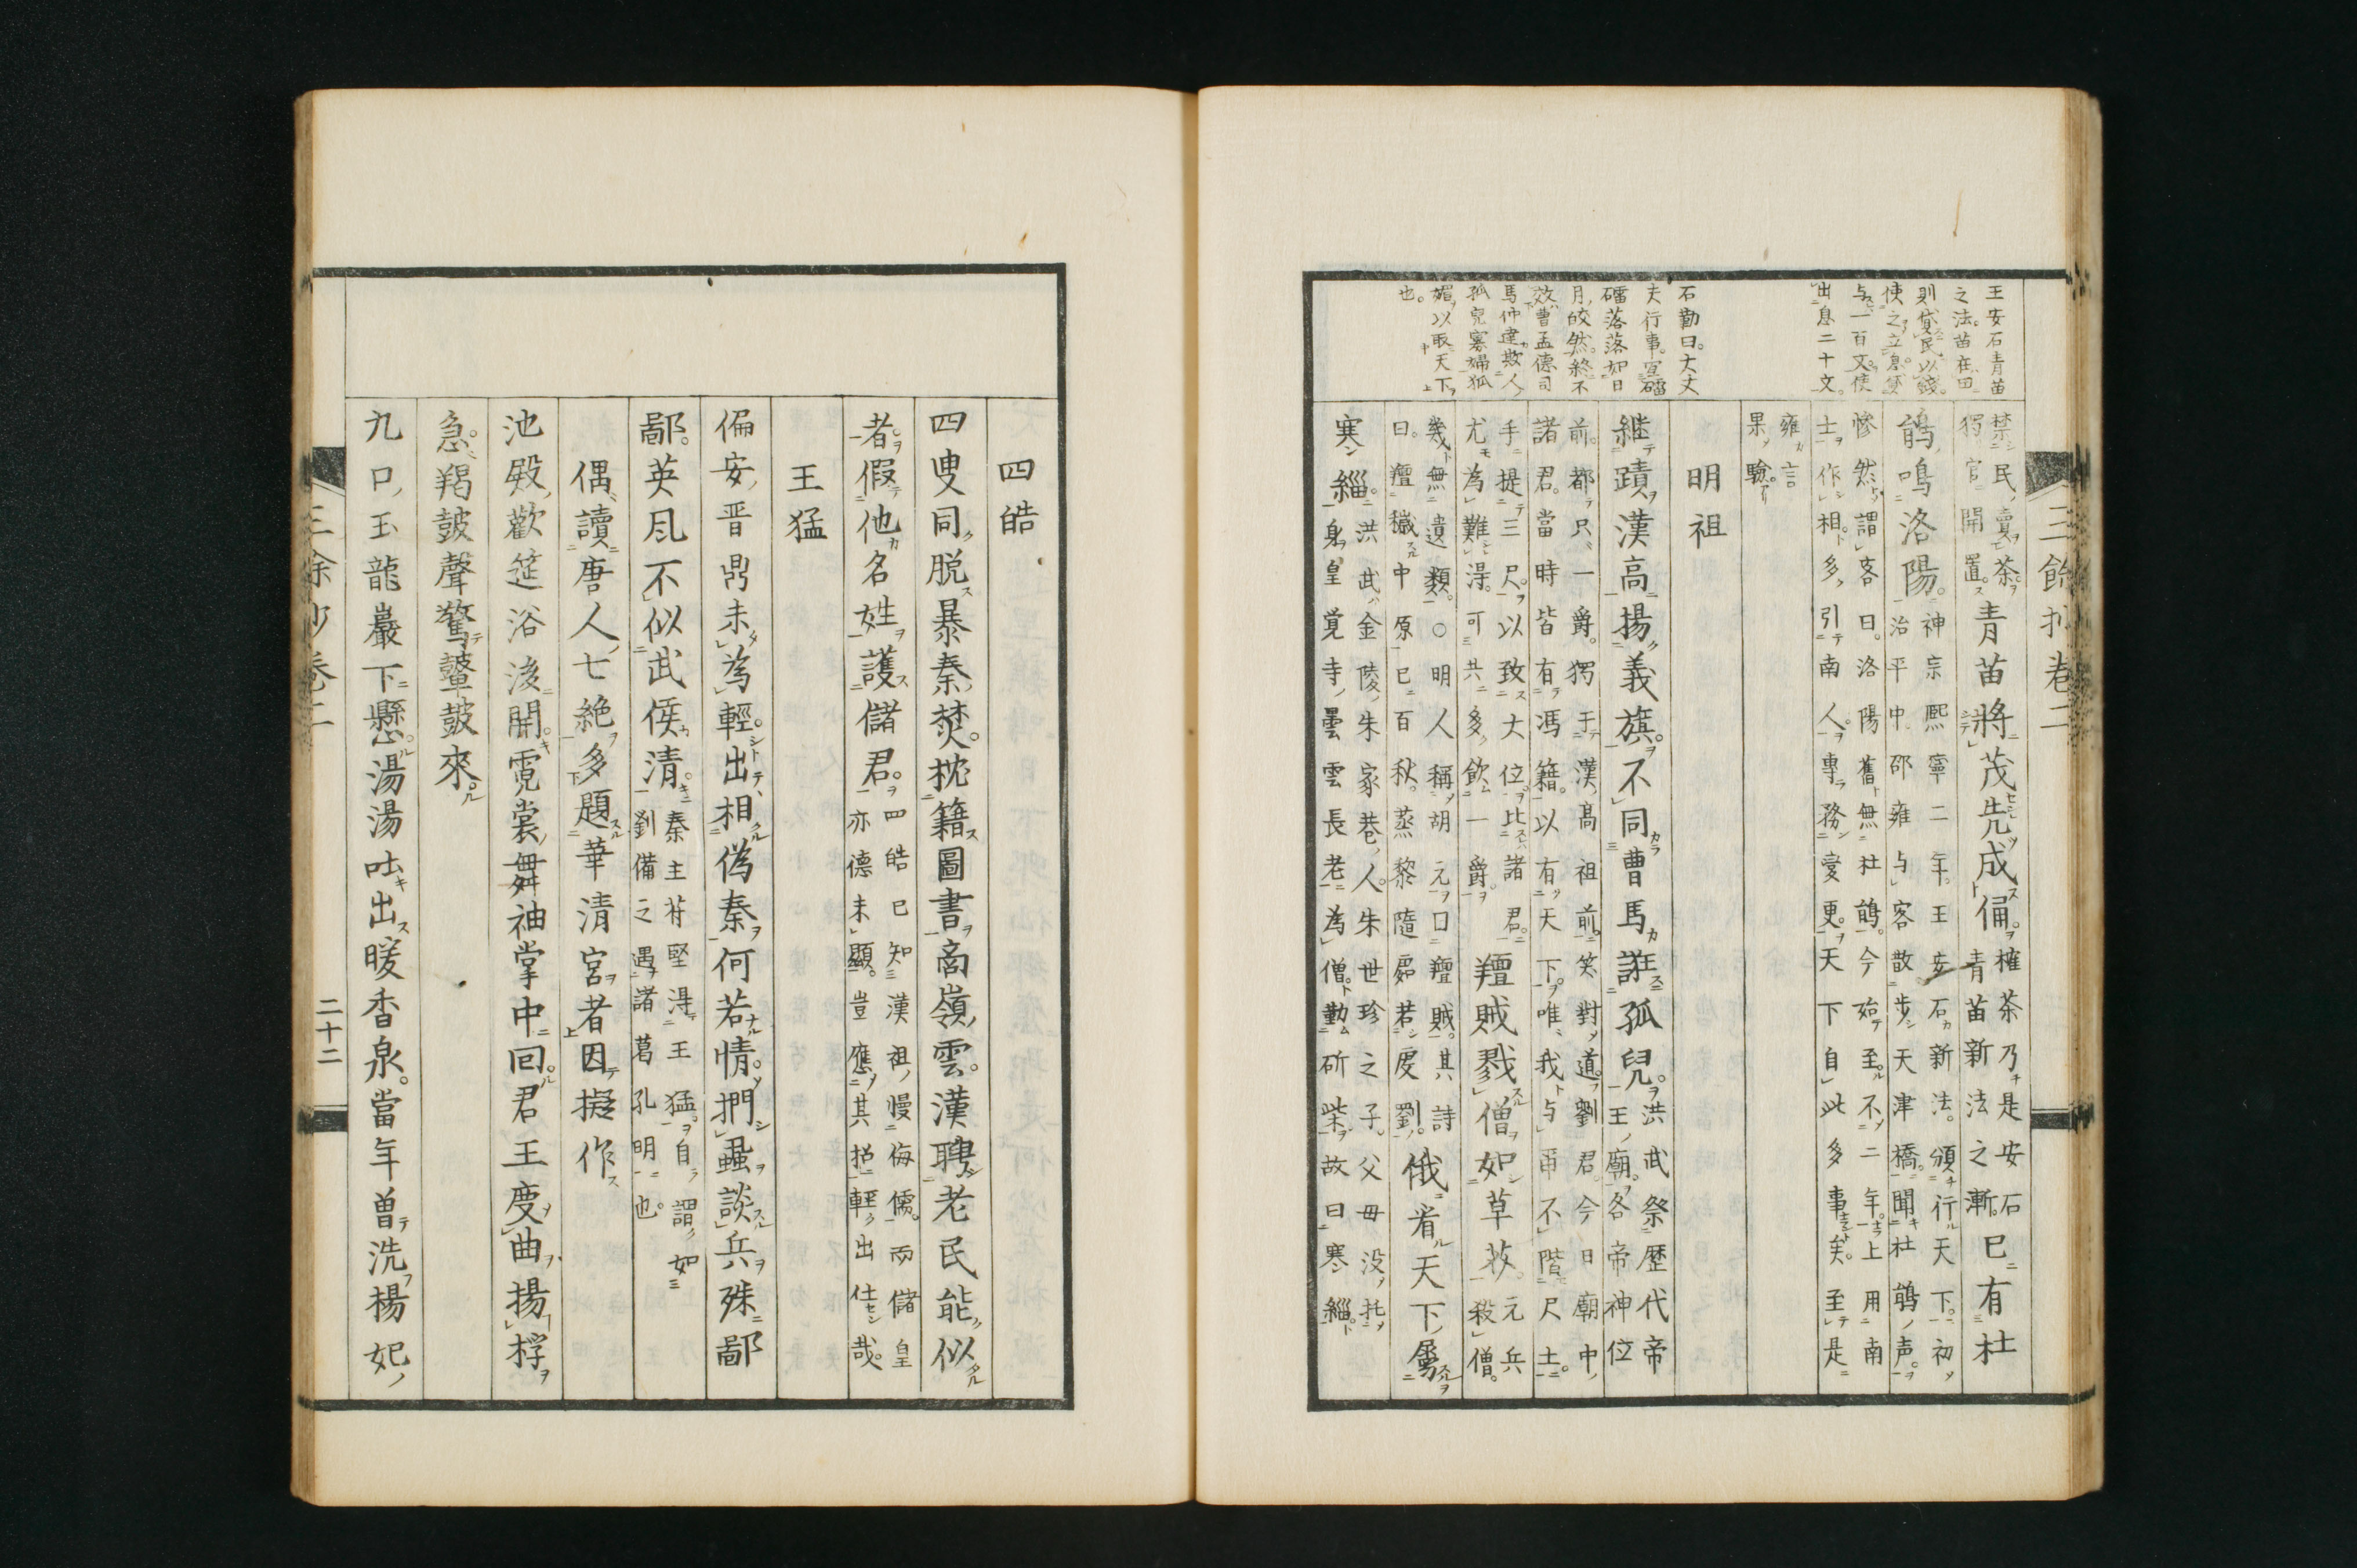 王安石青苗
之法。苗在田
則貸民以錢。
使之立息。便
与一百文。使
出息二十文。
石勒曰。大丈
夫行事。宜礌
礌落落如日
月皎然。終不
效曹孟德司
馬仲達欺人
孤児寡婦狐
媚以取天下
也。
禁民賣茶。
獨官開置。
青苗將茂先成俑。
榷茶乃是安石
青苗新法之漸。
已有杜
鵑鳴洛陽。
神宗熙寧二年。王安石新法。頒行天下。初
治平中邵雍与客散步天津橋。聞杜鵑声。
慘然謂客曰。洛陽舊無杜鵑。今始至。不二年。上用南
士作相。多引南人。專務変更。天下自此多事矣。至是
雍言
果験。
明祖
継蹟漢高揚義旗。不同曹馬誑孤兒。
洪武祭歴代帝
王廟。各帝神位
前。都只一爵。獨于漢高祖前。笑對道。劉君。今日廟中
諸君。當時皆有馮籍。以有天下。唯我与甭不階尺土。
手提三尺。以致大位。比諸君。
尤為難淂。可共多飲一爵。
羶賊戮僧如草菽。
元兵
殺僧。
幾無遺類。○明人稱胡元曰羶賊。其詩
曰。羶穢中原已百秋。蒸黎隨處若虔劉。
俄看天下屬
寒緇。
洪武金陵朱家巷人。朱世珍之子。父母没。托
身皇覚寺曇雲長老為僧。勤斫柴。故曰寒緇。
三餘抄巻二
四皓
四叟同脱暴秦焚。枕籍圖書商嶺雲。漢聘老民能似
者。假他名姓護儲君。
四皓已知漢祖慢侮儒。而儲皇
亦德未顯。豈應其招輕出仕哉。
王猛
偏安晋鼎未為輕。出相偽秦何若情。捫蝨談兵殊鄙
鄙。英凨不似武侯清。
秦主苻堅淂王猛。自謂如
劉備之遇諸葛孔明也。
偶讀唐人七絶多題華清宮者因擬作
池殿歡筵浴後開。霓裳舞袖掌中回。君王度曲揚桴
急。羯皷聲驚鼙皷來。
九口玉龍巖下懸。湯湯吐出暖香泉。當年曽洗楊妃
三餘抄巻二
二十二